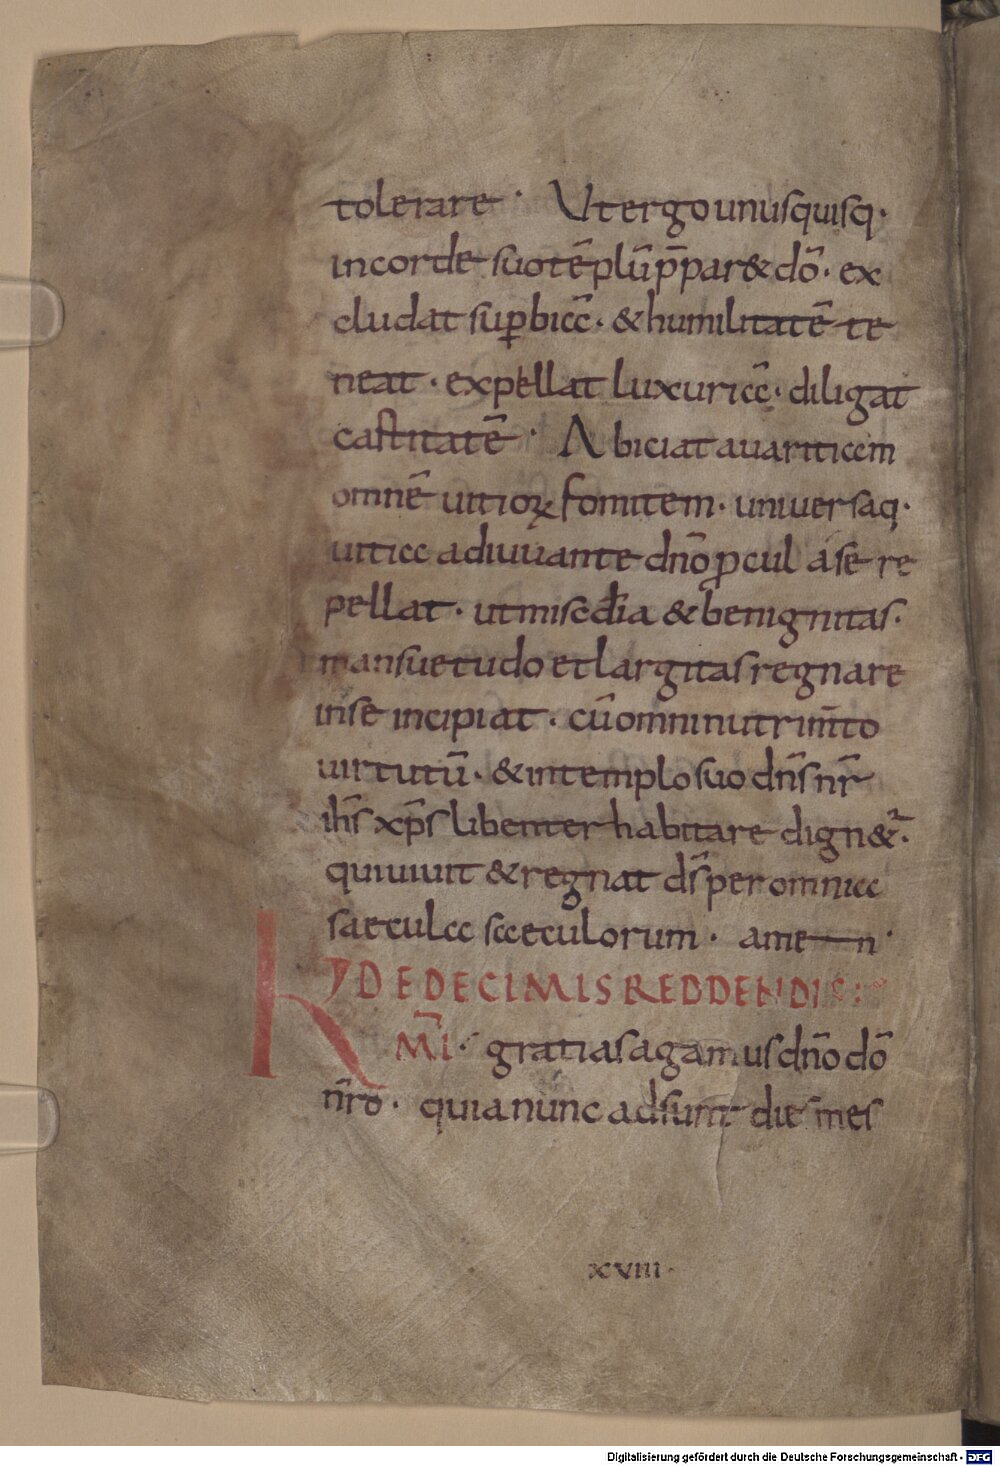 tolerare · Ut ergo unusquisq·
in corde suo tēplū p̄par& dō · ex
cludat sup̱biā · & humilitatē te
neat · expellat luxuriā · diligat
castitatē · Abiciat avaritiam
omnē uitioꝝ fomitem · universaq·
uitia adiuuante dn̄o ꝓcul a se re
pellat · ut misc̄dia & benignitas ·
mansuetudo et largitas regnare
in se incipiat · cū omni nutrim̄to
uirtutū · & in templo suo dn̄s nr̄
ih̄s xp̄s libenter habitare dign&ur ·
qui uiuit & regnat ds̄ per omnia
saecula saeculorum · amen ·
DE DECIMIS REDDENDIS :
K M̄I · gratias agamus dn̄o dō
nr̄o · quia nunc adsunt dies mes
xviii ·
Digitalisierung gefördert durch die Deutsche Forschungsgemeinschaft · DFG